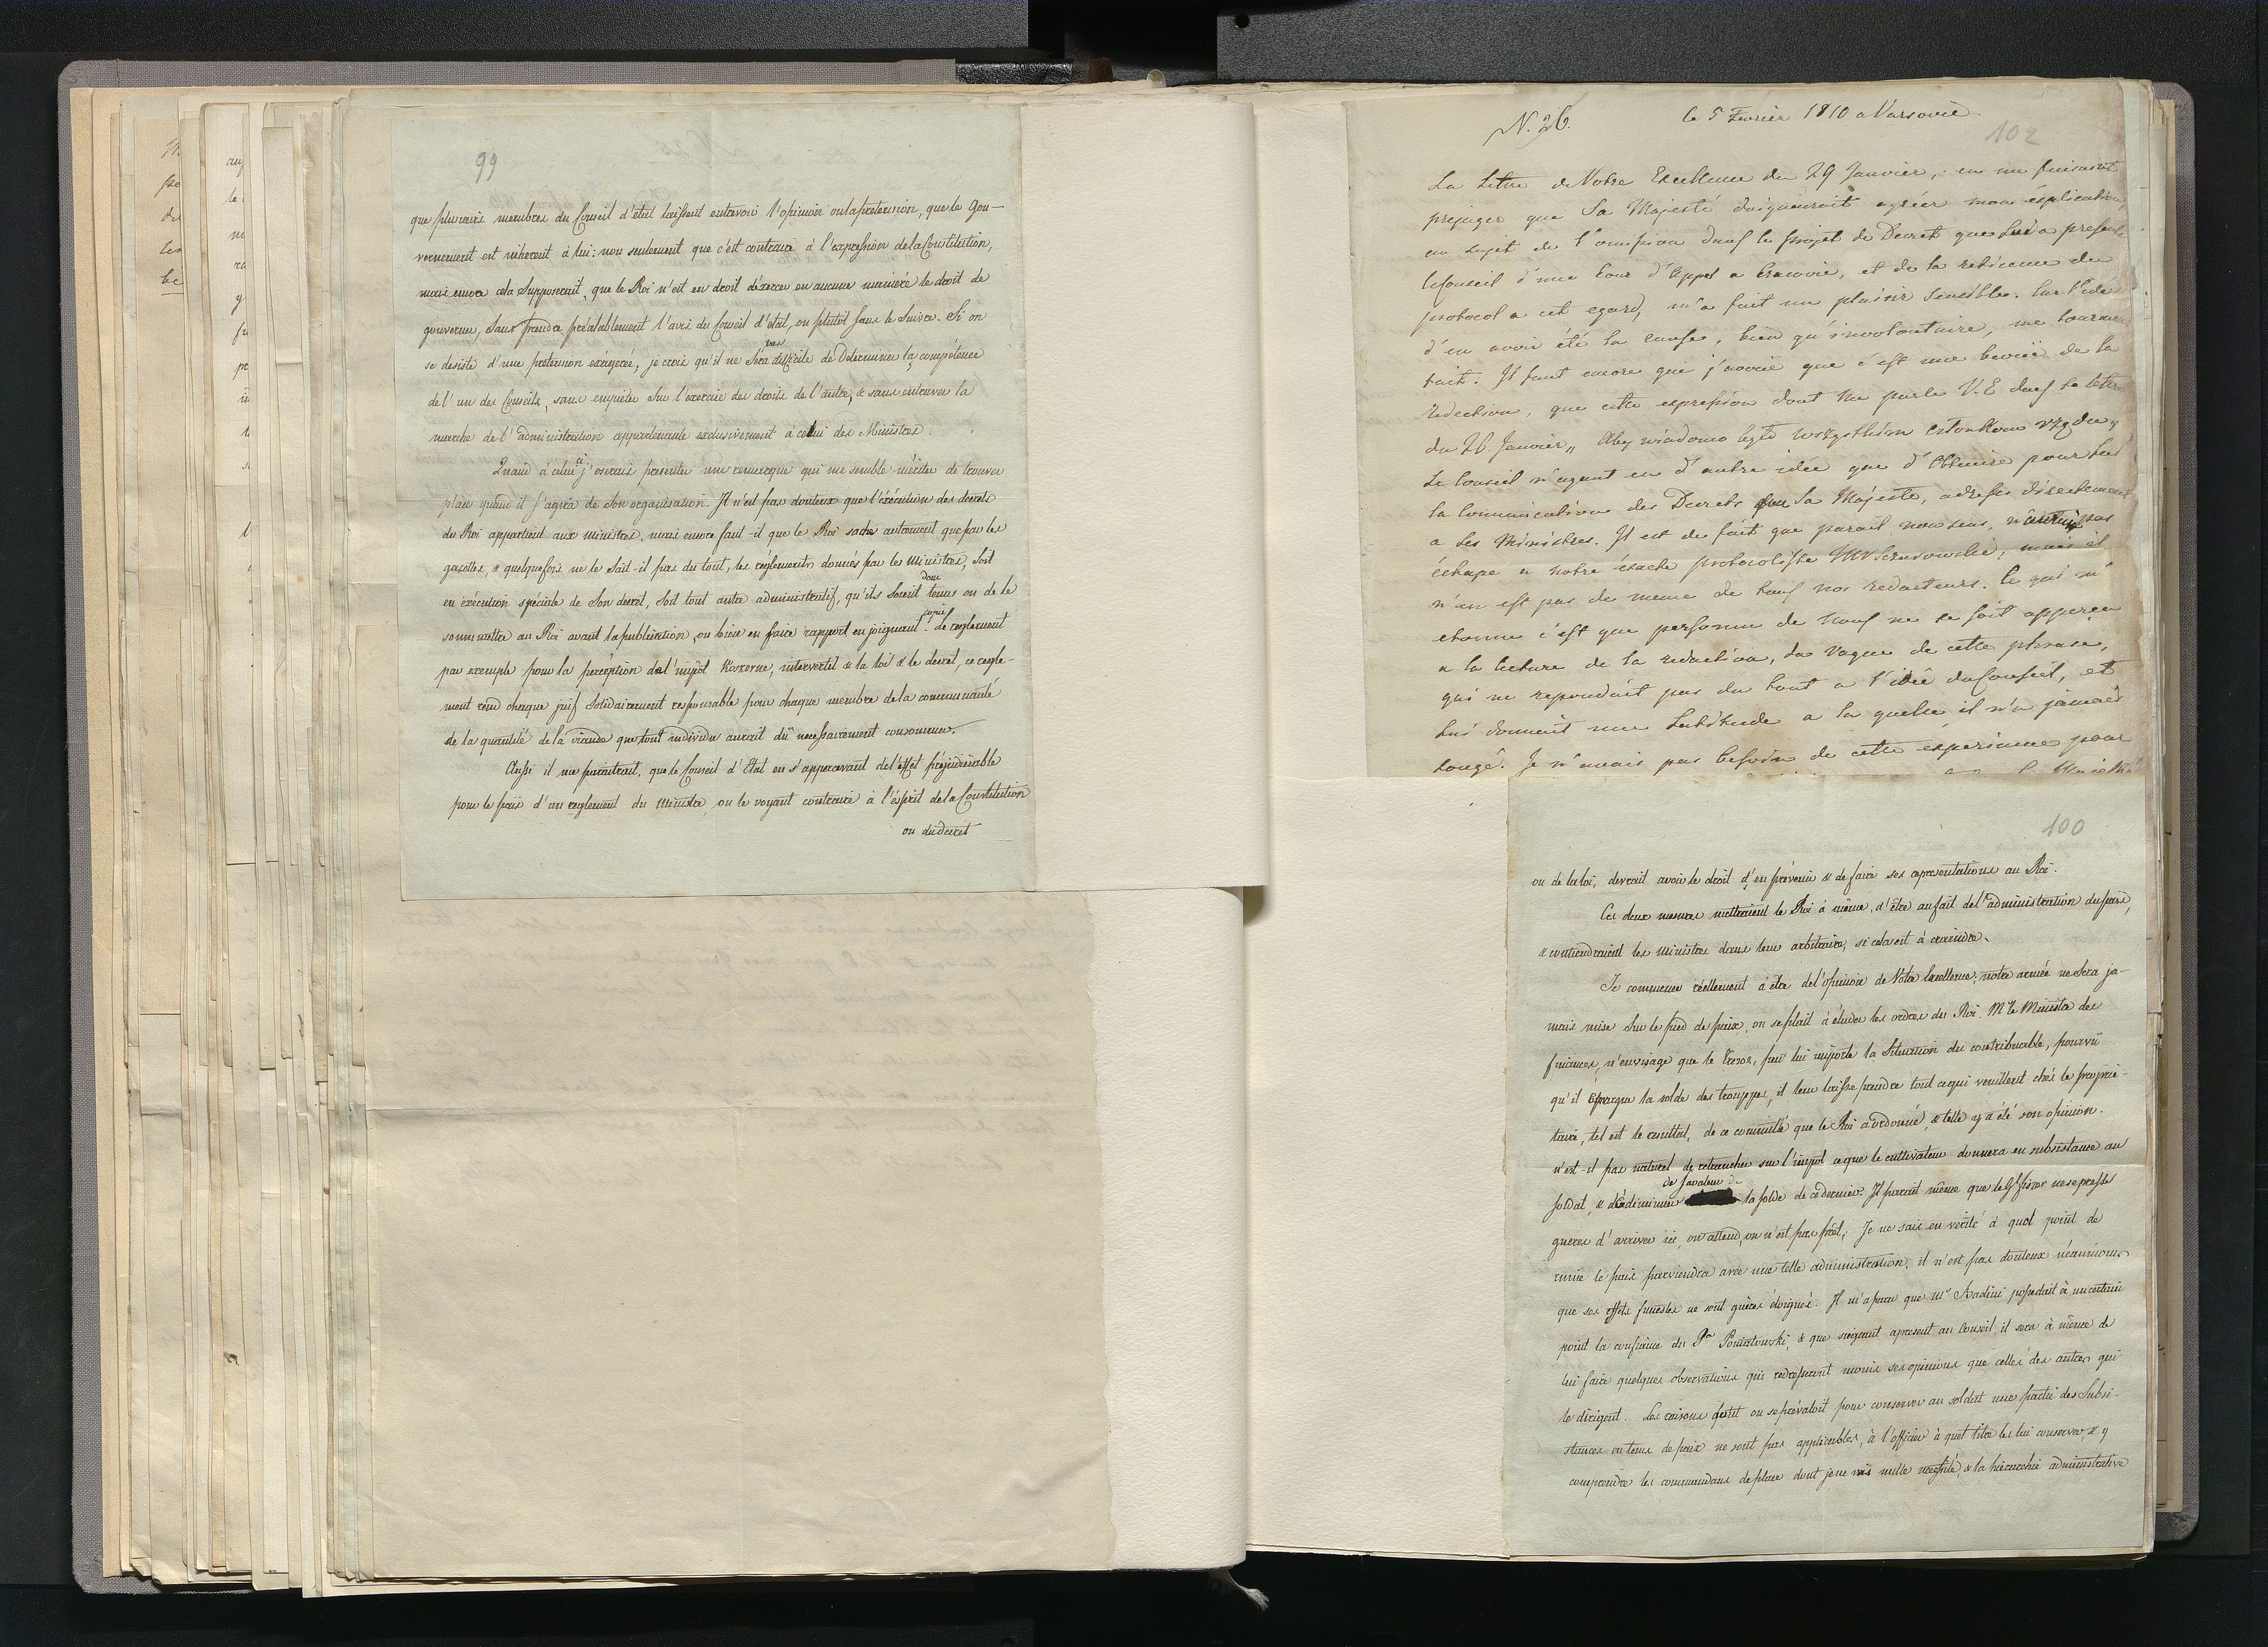 99
que plusieurs membres du Conseil d'état laissent entrevoir l'opinion ou la pretension, que le Gou-
vernement est inherent à lui: non seulement que c'est contraire à l'expression de la Constitution,
mais encore cela supposerait, que le Roi n'est en droit d'exercer en aucune manière le droit de
gouverner, sans prendre préalablement l'avis du Conseil d'état, ou plutôt sans le suivre. Si on
se desiste d'une pretension exagerée, je crois qu'il ne sera pas difficile de determiner la compétence
de l'un des Conseils, sans empiéter sur l'exercice des droits de l'autre, & sans entraver la
marche de l'administration appartenante exclusivement à celui des Ministres.
Quand à celui ci j'oserais presenter une remarque qui me semble mériter de trouver
place quand il s'agira de son organisation. Il n'est pas douteux que l'éxécution des decrets
du Roi appartient aux ministres, mais encore faut-il que le Roi sache autrement que par les
gazettes, & quelquefois ne le sait-il pas du tout, les réglements donnés par les ministres, soit
en exécution spéciale de son decret, soit tout autre administratif, qu'ils soient donc tenus ou de le
soummettre au Roi avant la publication, ou bien en faire rapport en joignant copie. Le reglement
par exemple pour la perception de l'impôt Koszerne, intervertit & la loi & le decret, ce regle-
ment rend chaque juif solidairement responsable pour chaque membre de la communauté
de la quantité de la viande que tout individu aurait dû necessairement consommer.
Aussi il me paraitrait, que le Conseil d'Etat en s'appercevant de l'effet préjudiciable
pour le païs d'un reglement du ministre, ou le voyant contraire à l'ésprit de la Constitution
ou du decret
N. 26.
le 5 Fevrier 1810 a Varsovie.
102
La Lettre de Votre Excellence du 29 Janvier, en me faisant
prejuger que Sa Majesté daigneroit agréer mon éxplication,
au sujet de l'omission dans le projet de Decret que lui a presenté
le Conseil d'une Cour d'Appel a Cracovie, et de la reticence du
protocol a cet egard, m'a fait un plaisir sensible. Car l'idée
d'en avoir été la cause, bien qu'involontaire, me tourmen
tait. Il faut encore que j'avoue que c'est une bevüe de la
redaction, que cette expression dont me parle V. E. dans sa lettre
du 26. Janvier „ Aby wiadomo było wszystkim członkom rządu „
Le Conseil n'ayant eu d'autre idée que d'obtenir pour lui
la Communication des Decrets que Sa Majesté, adresse directement
a Ses Ministres. Il est de fait que pareil non sens, n'auroit pas
échapé a notre éxacte protocoliste, mais il
n'en est pas de meme de tous nos redacteurs. Ce qui m'
etonne c'est que personne de nous ne se soit apperçu
a la lecture de la redaction, du vague de cette phrase,
qui ne repondait pas du tout a l'idée du Conseil, et
lui donnait une Latitude a la quelle il n'a jamais
songé. Je n'avais pas besoin de cette experience pour
100
ou de la loi, devrait avoir le droit d'en prévenir & de faire ses representations au Roi.
Ces deux mesures mettraient le Roi à même, d'être au fait de l'administration du païs,
& contiendraient les ministres dans leur arbitraire, si cela est à craindre.
Je commence réellement à être de l'opinion de Votre Excellence; notre armée ne sera ja-
mais mise sur le pied de paix, on se plait à éluder les ordres du Roi. Mr le Ministre des
finances, n'envisage que le tresor, peu lui importe la situation du contribuable, pourvû
qu'il épargne la solde des trouppes, il leur laisse prendre tout ce qui veuillent chés le proprie-
taire, tel est le resultat, de ce committé que le Roi a ordonné, & telle y a été son opinion.
n'est-il pas naturel de retrancher sur l'impôt ce que le cultivateur donnera en subsistance au
soldat, & de diminuer de sa valeur la solde de ce dernier? Il parrait même que le ne se presse
gueres d'arriver ici, on attend, on n'est pas prêt; Je ne sais en vérité à quel point de
ruine le païs parviendra avec une telle administration, il n'est pas douteux néanmoins
que ses effets funestes ne sont guères éloignés. Il m'a paru que Mr Badeni possedait à un certain
point la confiance du Pce Poniatowski, & que siégeant apresent au Conseil, il sera à même de
lui faire quelques observations qui redresseront moins ses opinions que celles des autres qui
le dirigent. Les raisons dont on se prévaloit pour conserver au soldat une partie des Subsi-
stances en tems de paix ne sont pas applicables, à l'officier à quel titre les lui conserver & y
comprendre les commandans de place dont je ne vois nulle necessité, & la hierarchie administrative